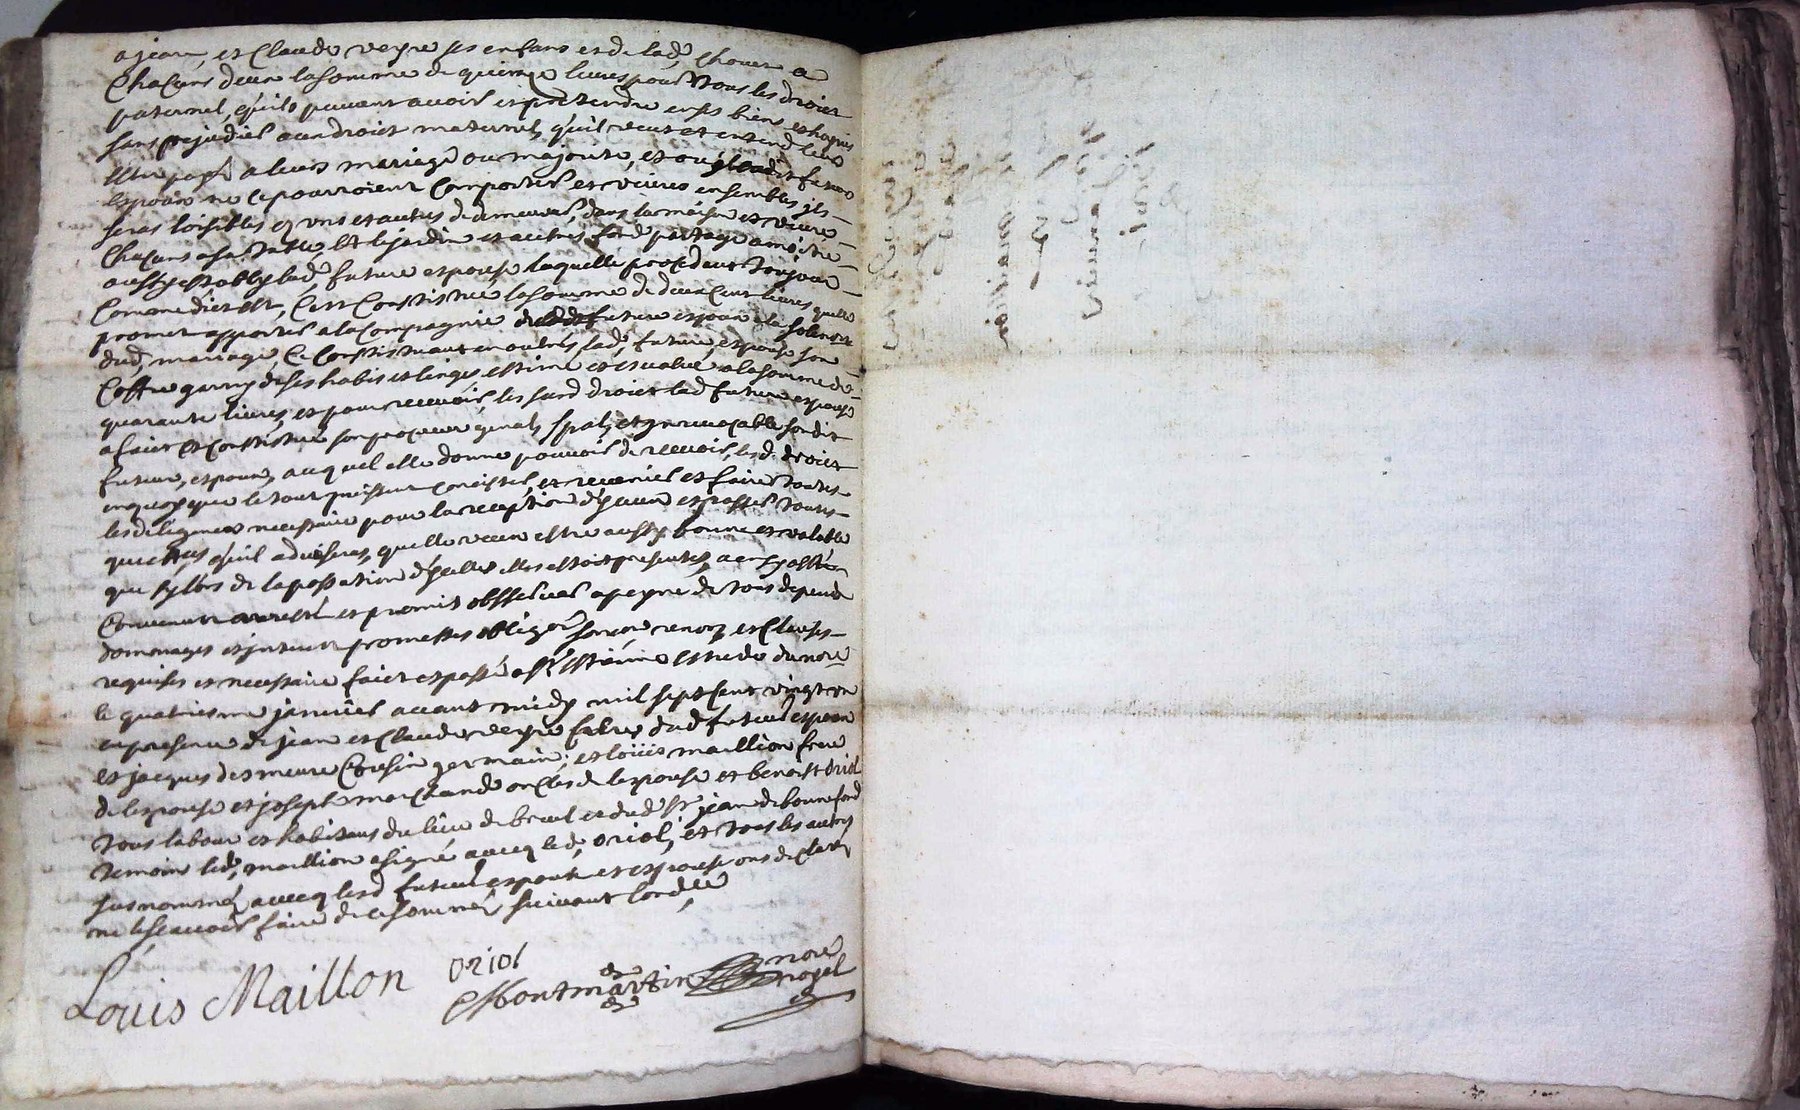 a jean, et Claude veyre ses enfans et de lad^e, Chovet a
Chacuns deux la somme de quinze livres pour tous les droict
paternel, quils peuvent avoir et pretendre en ses biens et hoyries
sans prejudice aux droict maternel, quil veut et entend leur
estre payé a leurs mariage ou majorite, et ou
espoux ne ce pourroient Comporter et vivres ensembles ils
seras loisibles et uns et autres de demeures, dans la meson et vivre
Chacuns a sa table, et le jardin et autres fond partage a moitie
aussy establys lad^e future espouse laquelle procedant toujour
Comme dict est, C'est Constistuée la somme de deux Cent livres quelle
promet apporter a la Compagnie future espoux a la solenité
dud, mariage, Ce Constistuant en outres, lad^e future espouse son
Coffre garny de ses habis et linges estimé et evalué a la somme de
quarante livres, et pour recevoir, les susd droict lad future espouse
a faict et Constistué son procureur genal, spal, et irrevocable sondit
futur, espoux, auquel elle donne pouvoir de recevoir, lesd. droict
enquoy que le tout puissent Consister, et revenir et faire toutes
les deligences necessaire pour la reception d'yceux et passer toutes
quittes quil adviseras, quelle veux estre aussy bonne et valable
que sy lors de la passation d'ycelles elles estoit presentes, a
Convenu arresté et promis observer a peyne de tous depends
dommages et interest promettes obliger renon et Clauses
requises et necessaire faict et passé a S^t Estienne estude du nore
le quatriesme janvier avant midy mil sept Cent vingt un
en presence de jean et Claude veyre dud futur espoux
et jacques desmeure Cousin germain, et loüis maillion frere
de lespouse et joseph marchand oncles de lespouse et benoist oriol
tous labour et habitans du lieu de et dud S^t jean de bonnefond
temoin led, maillion a signé avecq led, oriol, et tous les autres
susnommé, avecq lesd futeur espoux et espouse ons declaré
ne le scavoir faire de ce sommé suivant lord^ce
Louis Maillon oriol
Montmartin nore
rogel